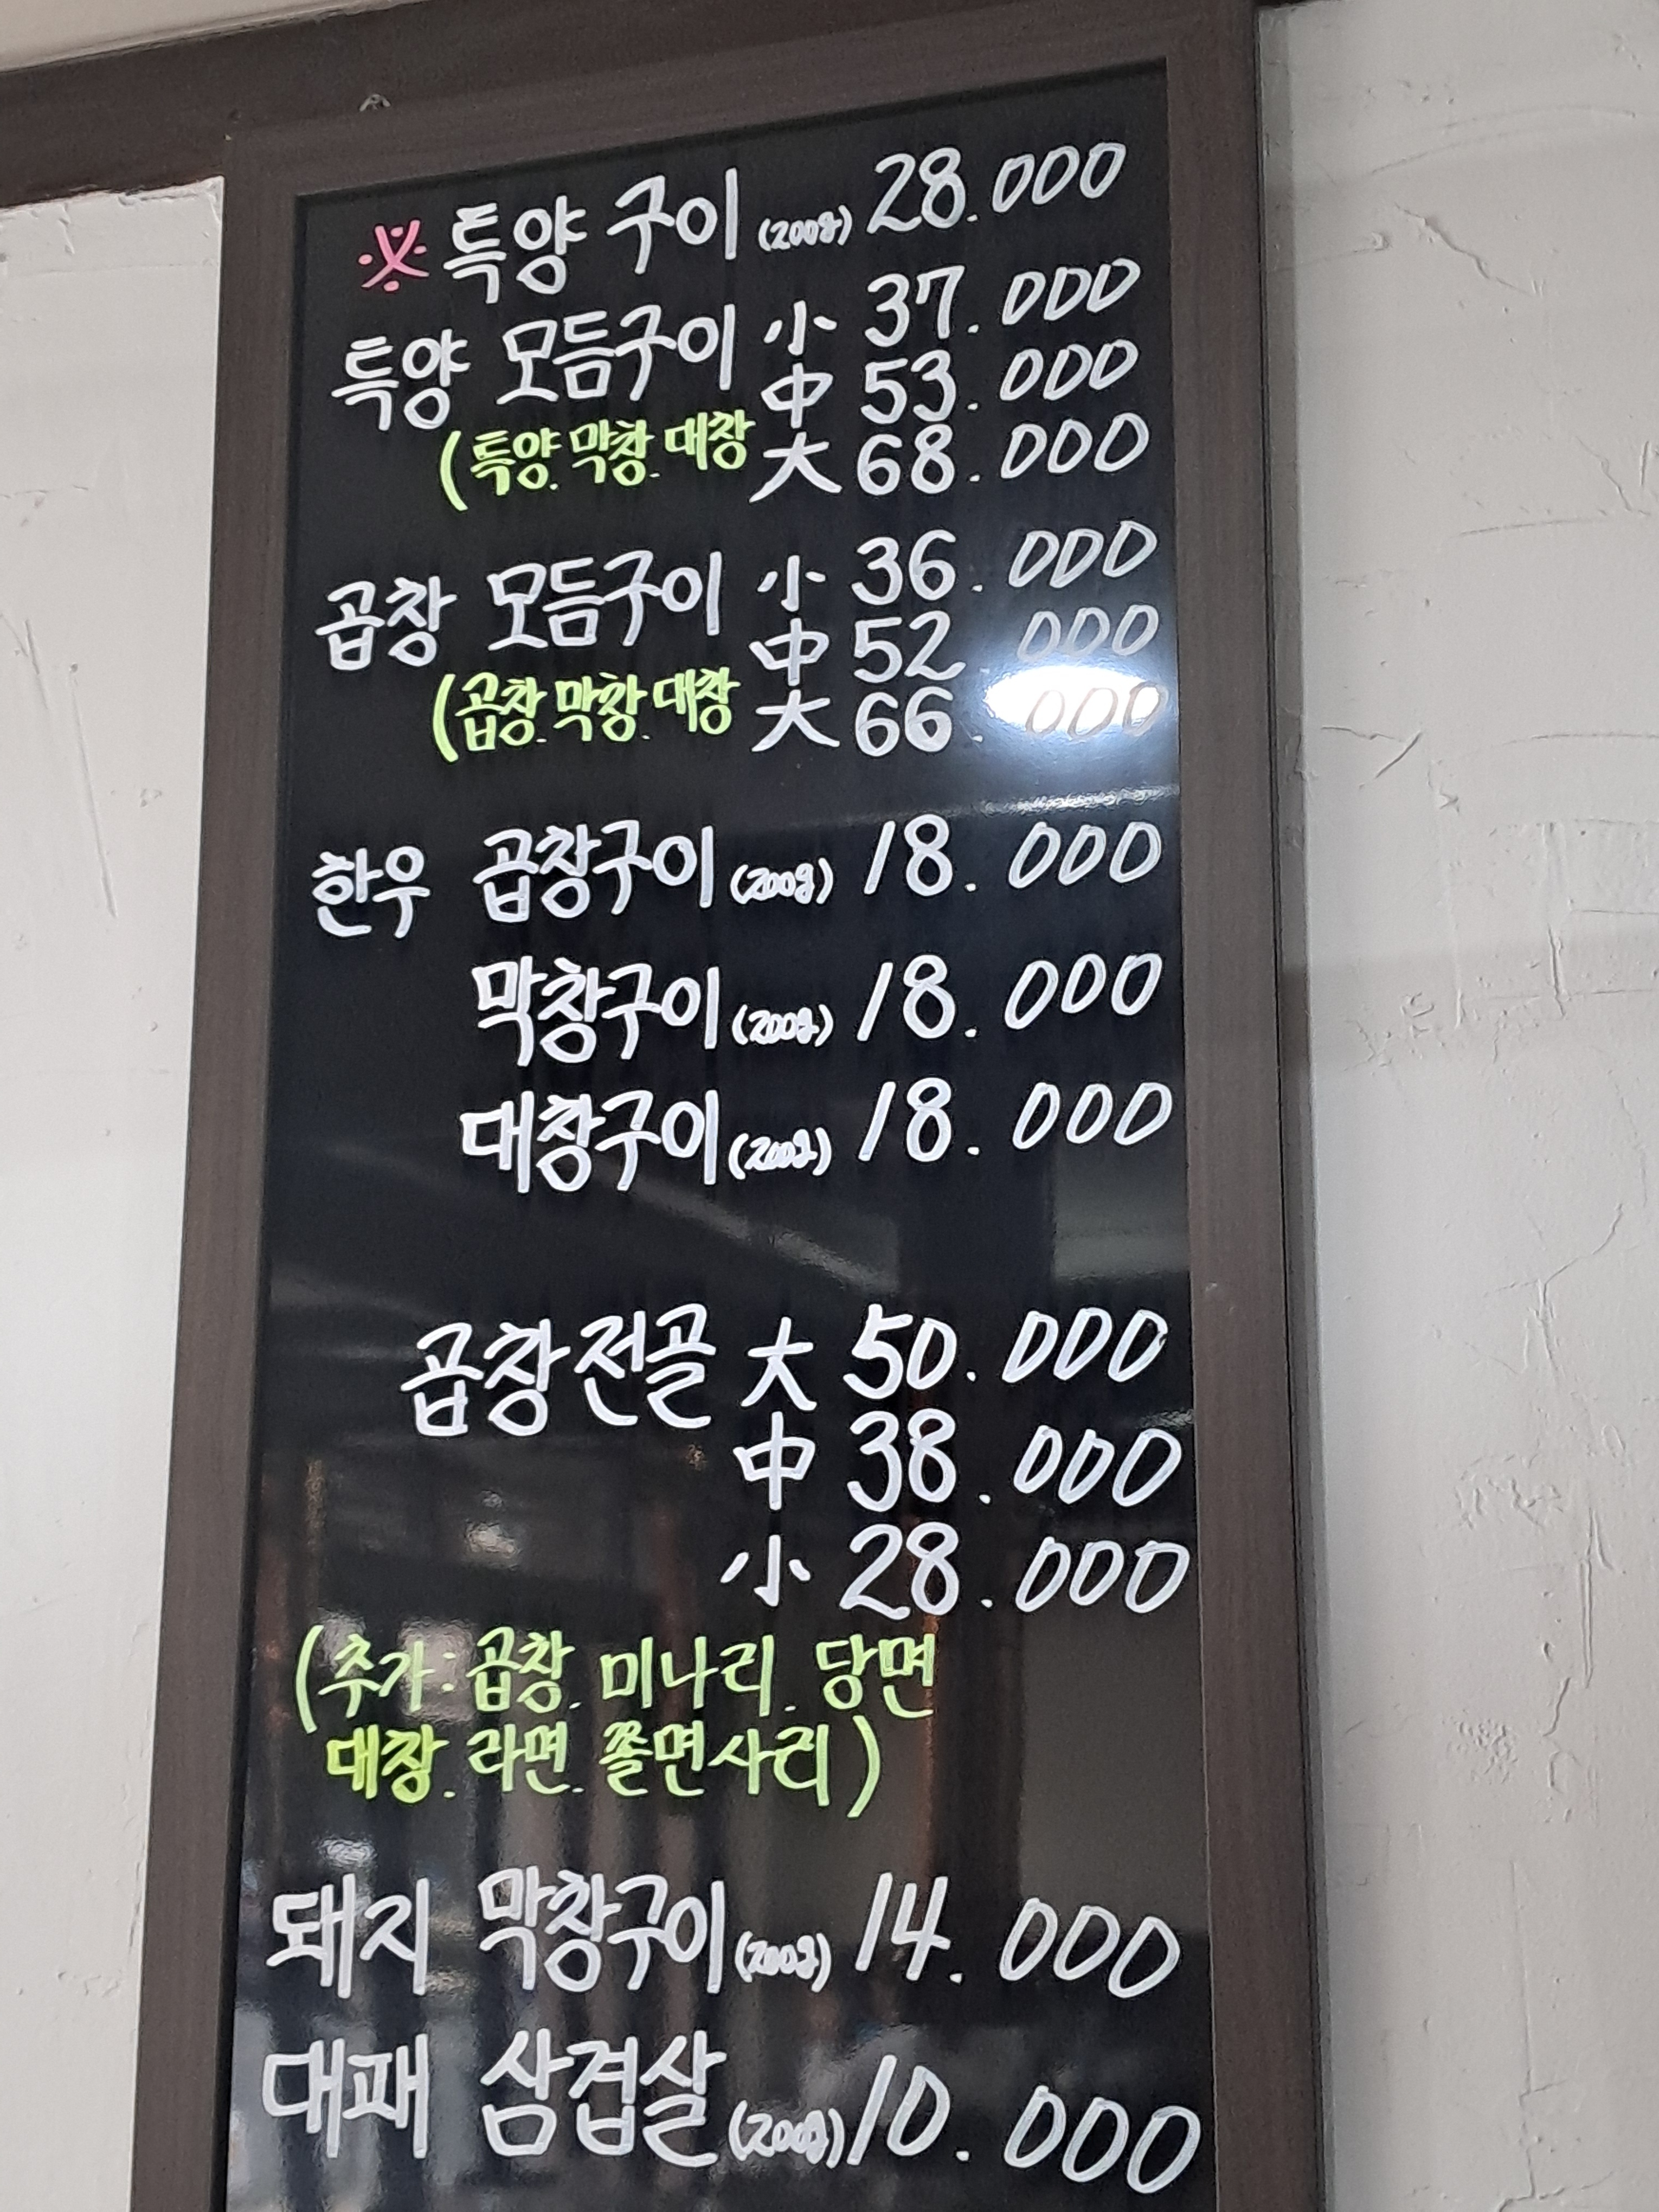 ※ 특양 구이 (200g) 28.000
특양 모듬구이 小 37.000
中 53.000
(특양. 막창. 대창 大 68.000
곱창 모듬구이 小 36.000
中 52.000
(곱창. 막창. 대창 大 66.000
한우 곱창구이 (200g) 18.000
막창구이 (200g) 18.000
대창구이 (200g) 18.000
곱창전골 大 50.000
中 38.000
小 28.000
(추가: 곱창. 미나리. 당면
대창. 라면. 쫄면사리)
돼지 막창구이 (200g) 14.000
대패 삼겹살 (200g) 10.000